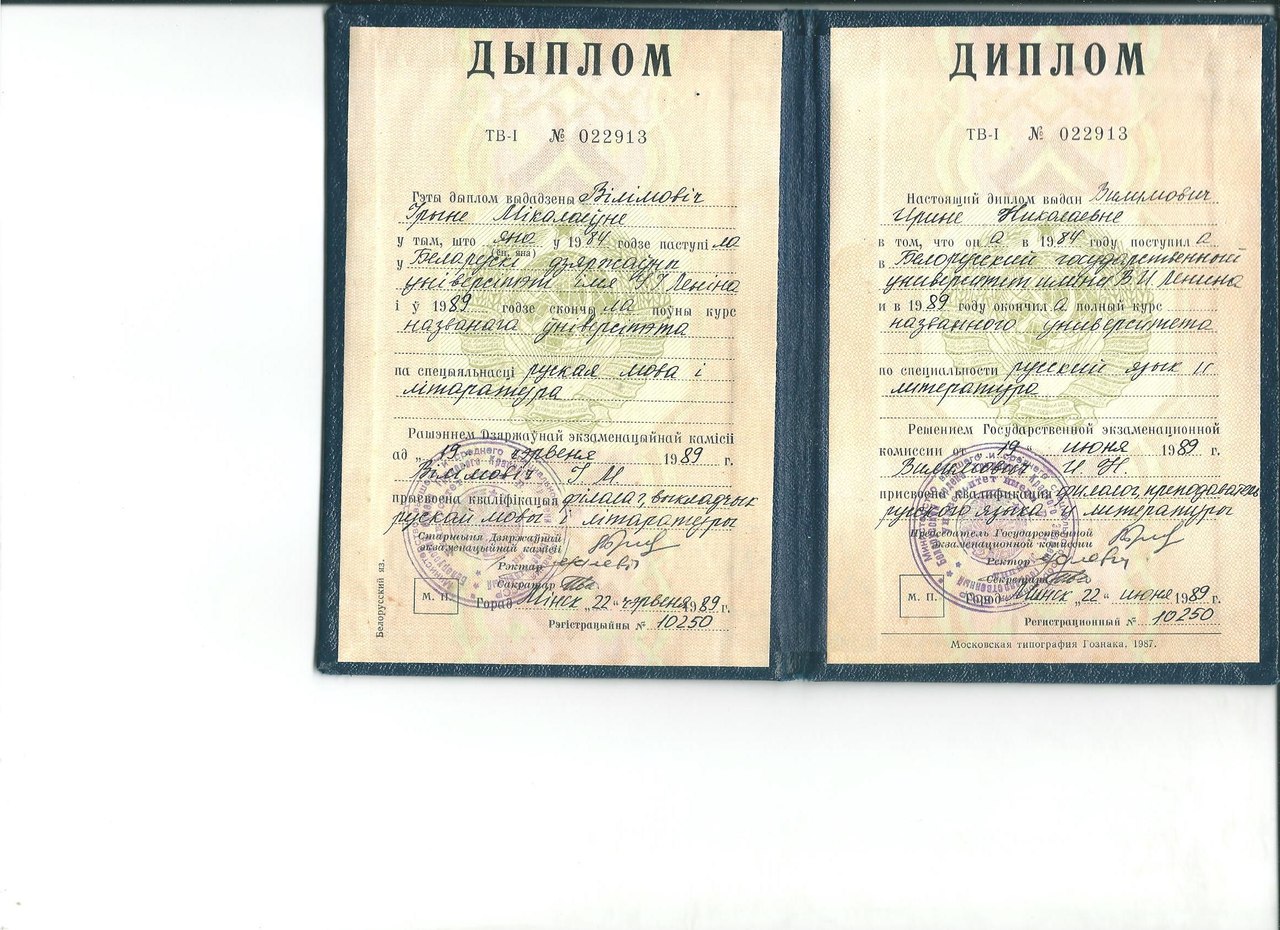 ДЫПЛОМ
ТВ-I № 022913
Гэты дыплом выдадзены Вілімовіч
Ірыне Мікалаеўне
у тым, што яна у 1984 годзе паступіла
(ён, яна)
у Беларускі дзяржаўны
універсітэт імя У.І. Леніна
і ў 1989 годзе скончыла поўны курс
названага універсітэта
па спецыяльнасці руская мова і
літаратура
Рашэннем Дзяржаўнай экзаменацыйнай камісіі
ад „19 чэрвеня 1989 г.
Вілімовіч І. М.
прысвоена кваліфікацыя філолаг, выкладчык
рускай мовы і літаратуры
Старшыня Дзяржаўнай
экзаменацыйнай камісіі
Рэктар
Сакратар
М. П.
Горад Мінск „22“ чэрвеня 1989 г.
Рэгістрацыйны № 10250
Белорусский яз.
ДИПЛОМ
ТВ-I № 022913
Настоящий диплом выдан Вилимович
Ирине Николаевне
в том, что она в 1984 году поступила
в Белорусский государственный
университет имени В.И. Ленина
и в 1989 году окончила полный курс
названного университета
по специальности русский язык и
литература
Решением Государственной экзаменационной
комиссии от „19“ июня 1989 г.
Вилимович И. Н.
присвоена квалификация филолог, преподаватель
русского языка и литературы
Председатель Государственной
экзаменационной комиссии
Ректор
Секретарь
М. П.
Город Минск „22“ июня 1989 г.
Регистрационный № 10250
Московская типография Гознака, 1987.